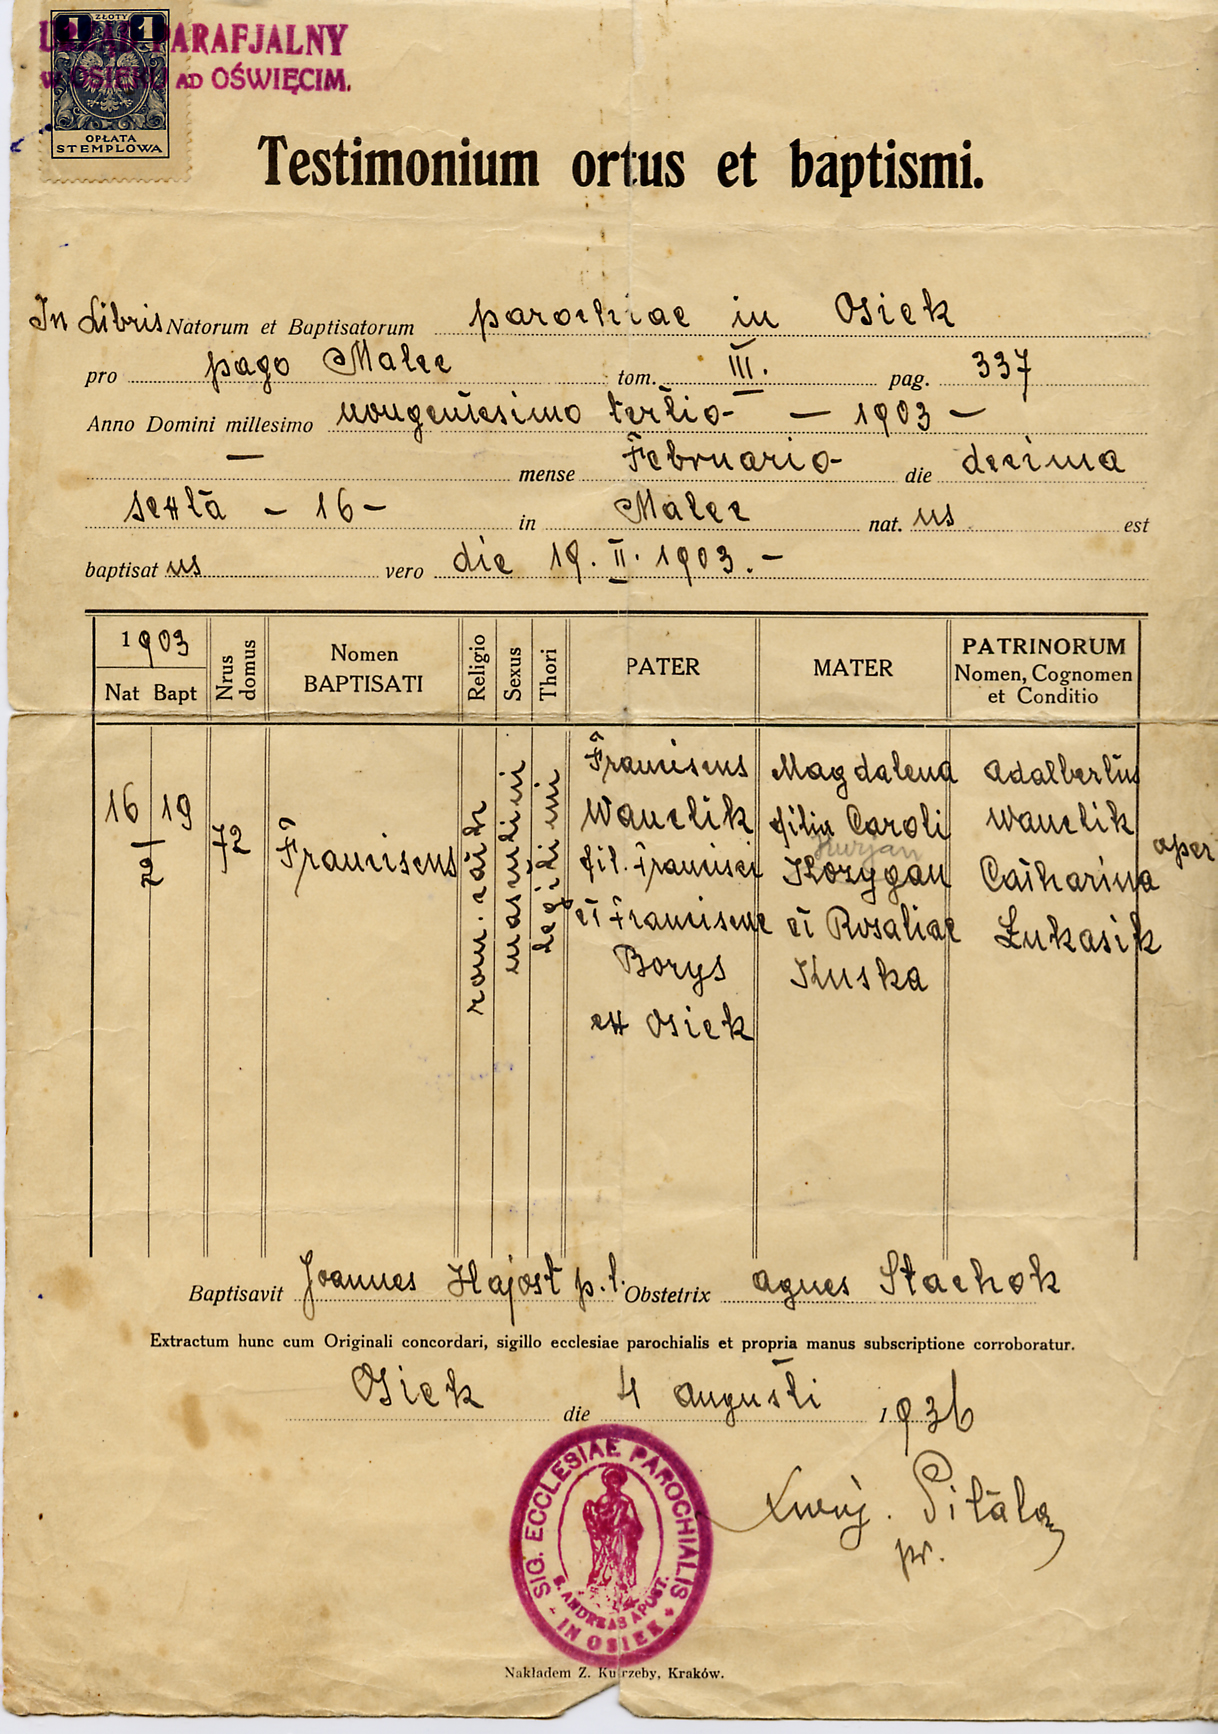 1 ZŁOTY 1
URZĄD PARAFJALNY
W OSIEKU AD OŚWIĘCIM.
OPŁATA
STEMPLOWA
Testimonium ortus et baptismi.
In Libris Natorum et Baptisatorum parochiae in Osiek
pro pago Malec tom. III. pag. 337
Anno Domini millesimo nongentesimo tertio - — 1903 —
— mense Februario - die decima
sexta - 16 - in Malec nat. us est
baptisat us vero die 19. II. 1903. -
1903
Nat Bapt
Nrus domus
Nomen
BAPTISATI
Religio
Sexus
Thori
PATER
MATER
PATRINORUM
Nomen, Cognomen
et Conditio
16 19
2
72
Franciscus
rom. cath
masculini
legitimi
Franciscus
Wanclik
fil. Francisci
et Franciscae
Borys
ex Osiek
Magdalena
filia Caroli
Kozygan
et Rosaliae
Kuska
Adalbertus
Wanclik
Catharina
Łukasik
aper
Baptisavit Joannes Hajost p. l. Obstetrix Agnes Stachok
Extractum hunc cum Originali concordari, sigillo ecclesiae parochialis et propria manus subscriptione corroboratur.
Osiek die 4 augusti 1936
pr.
SIG. ECCLESIAE PAROCHIALIS
S. ANDREAS APOST.
IN OSIEK
Nakładem Z. Kutrzeby, Kraków.